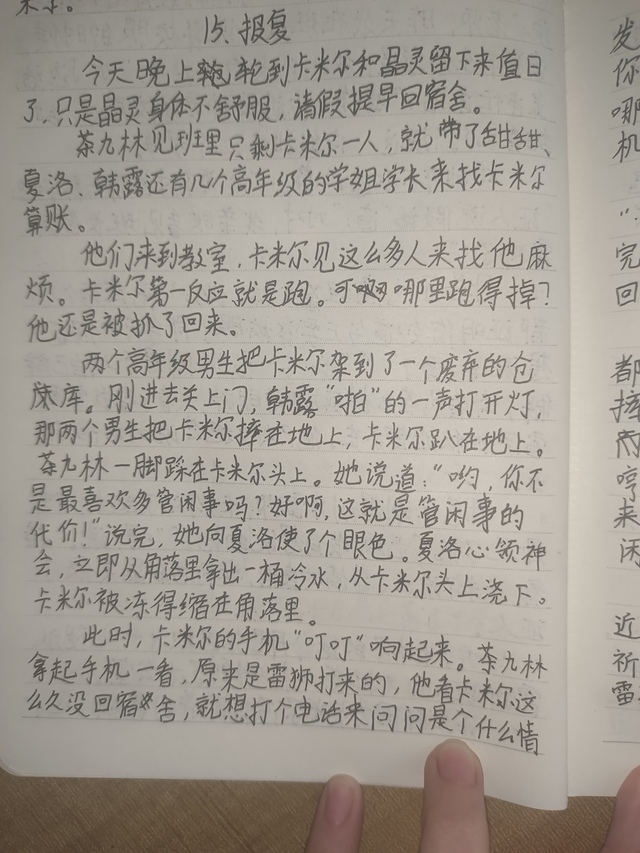 15、报复
今天晚上轮到卡米尔和晶灵留下来值日
了，只是晶灵身体不舒服，请假提早回宿舍。
茶九林见班里只剩卡米尔一人，就带了甜甜、
夏洛、韩露还有几个高年级的学姐学长来找卡米尔
算账。
他们来到教室，卡米尔见这么多人来找他麻
烦。卡米尔第一反应就是跑。可哪里跑得掉？
他还是被抓了回来。
两个高年级男生把卡米尔架到了一个废弃的仓
库。刚进去关上门，韩露“啪”的一声打开灯，
那两个男生把卡米尔摔在地上，卡米尔趴在地上。
茶九林一脚踩在卡米尔头上。她说道：“哟，你不
是最喜欢多管闲事吗？好啊，这就是管闲事的
代价！”说完，她向夏洛使了个眼色。夏洛心领神
会，立即从角落里拿出一桶冷水，从卡米尔头上浇下。
卡米尔被冻得缩在角落里。
此时，卡米尔的手机“叮叮”响起来。茶九林
拿起手机一看，原来是雷狮打来的，他看卡米尔这
么久没回宿舍，就想打个电话来问问是个什么情
发
你
哪
机
完
回
都
摔
哼
来
闲
近
祈
雷